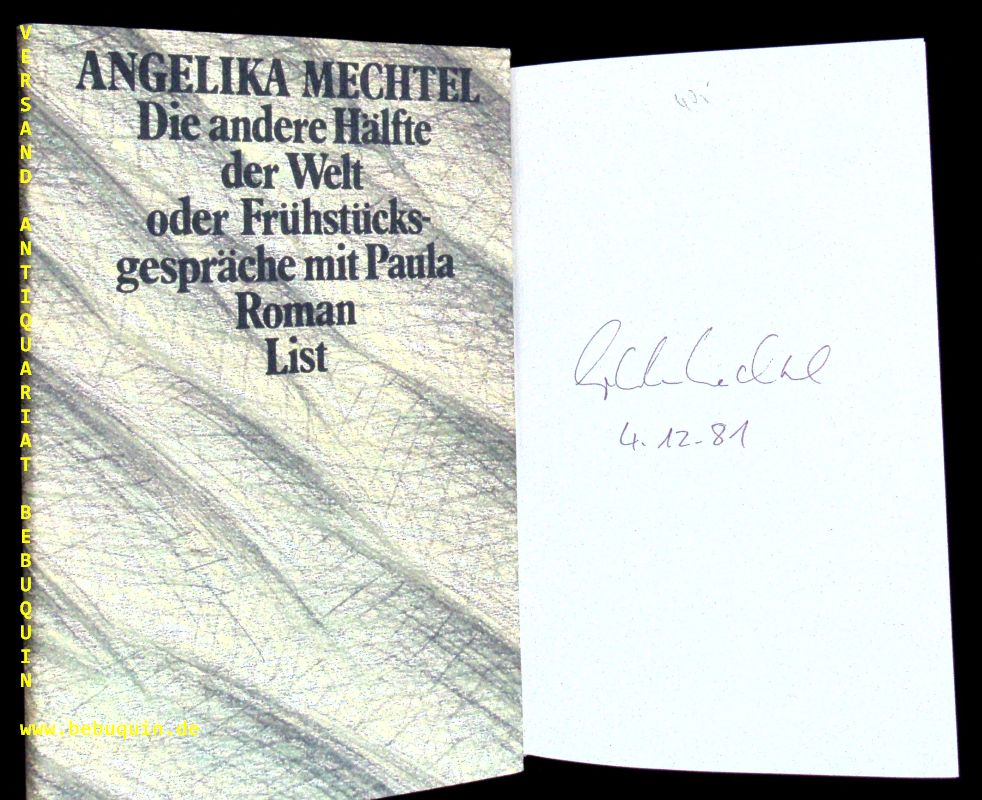 VERSAND ANTIQUARIAT BEBUQUIN
www.bebuquin.de
ANGELIKA MECHTEL
Die andere Hälfte
der Welt
oder Frühstücks-
gespräche mit Paula
Roman
List
4.12.81